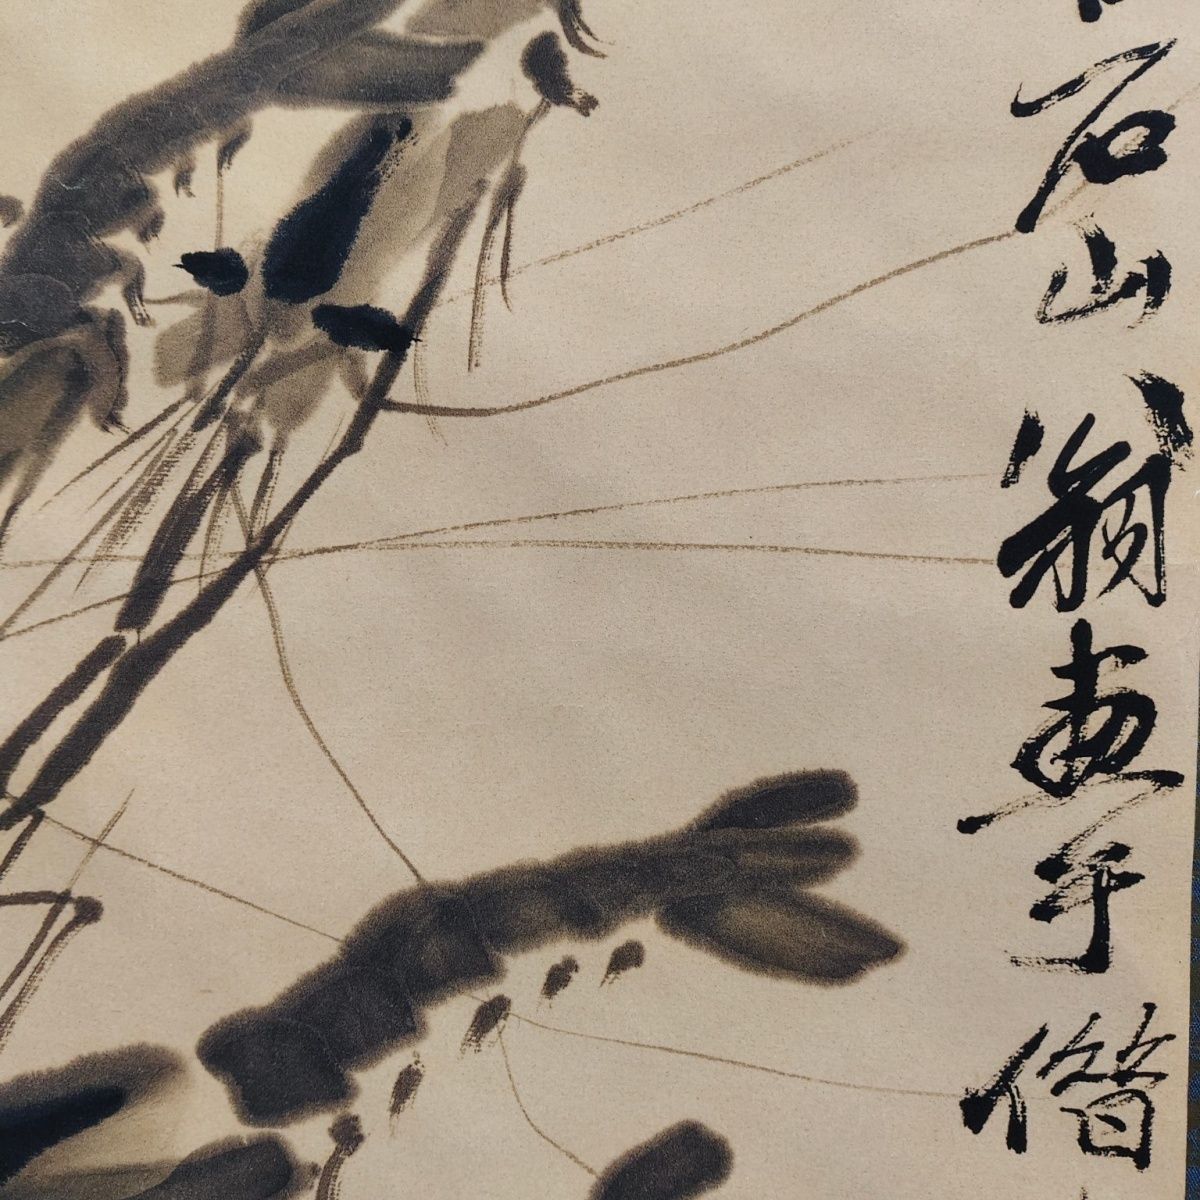 石山翁畫于借